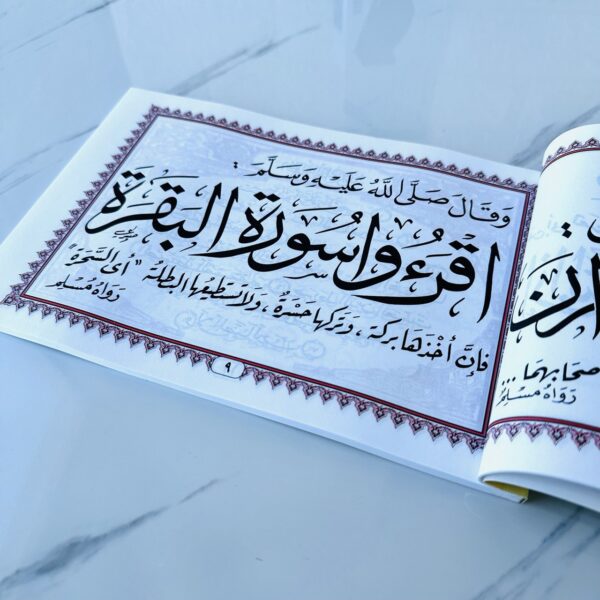 وَقَالَ صَلَّى اللهُ عَلَيْهِ وَسَلَّمَ :
اقْرَءُوا سُورَةَ الْبَقَرَةِ
فَإِنَّ أَخْذَهَا بَرَكَة ، وَتَرْكَهَا حَسْرَةٌ ، وَلَا تَسْتَطِيعُهَا الْبَطَلَةُ " أى السَّحَرَة "
رَوَاهُ مُسْلِم
٩
صحابهما ...
رَوَاهُ مُسْلِم